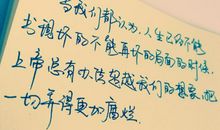 当我们都认为,人生已有不能
书调坏的不能再坏的局面的时候,
上帝总有办法超越我们的想象,把
一切弄得更加腐烂.